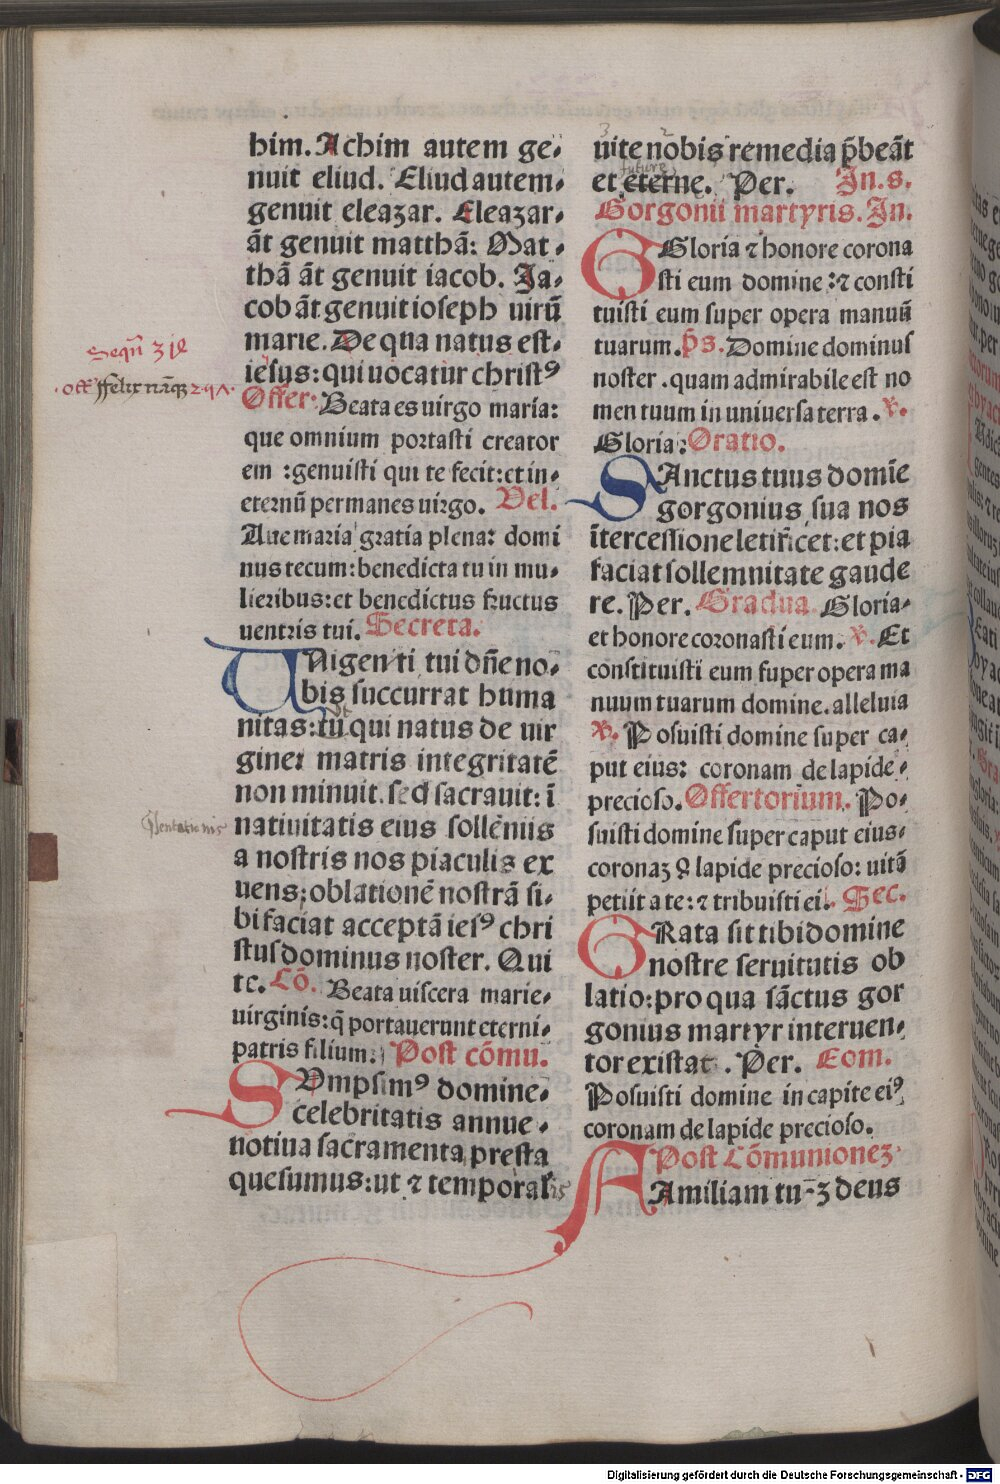 him. Achim autem ge⸗
nuit eliud. Eliud autem⸗
genuit eleazar. Eleazar⸗
āt genuit matthā: Mat⸗
thā āt genuit iacob. Ja⸗
cob āt genuit ioseph uirū
marie. De qua natus est⸗
iesus: qui uocatur christꝰ
Offer: Beata es uirgo maria:
que omnium portasti creator
em : genuisti qui te fecit: et in⸗
eternū permanes uirgo. Vel.
Aue maria gratia plena: domi
nus tecum: benedicta tu in mu⸗
lieribus: et benedictus fructus
uentris tui. Secreta.
VNigeniti tui dn̄e no⸗
bis succurrat huma
nitas: ut qui natus de uir
gine: matris integritatē
non minuit. sed sacrauit: ī
natiuitatis eius sollēniis
a nostris nos piaculis ex
uens: oblationē nostrā si⸗
bi faciat acceptā iesꝰ chri
stus dominus noster. Qui
tc. Cō. Beata uiscera marie⸗
uirginis: q̄ portauerunt eterni⸗
patris filium. Post cōmu.
SVmpsimꝰ domine⸗
celebritatis annue⸗
notiua sacramenta presta
quesumus: ut ⁊ temporalis
Seqn̄
Off
ffelix
p̄sentationis
uite nobis remedia p̄beāt
et eterne. Per. In. s.
future
3 2
Gorgonii martyris. In.
GGloria ⁊ honore corona
sti eum domine: ⁊ consti
tuisti eum super opera manuū
tuarum. p̄s. Domine dominus
noster. quam admirabile est no
men tuum in uniuersa terra. V.
Gloria: Oratio.
SAnctus tuus domīe
gorgonius, sua nos
ītercessione letificet: et pia
faciat sollemnitate gaude
re. Per. Gradua. Gloria⸗
et honore coronasti eum. V. Et
constituisti eum super opera ma
nuum tuarum domine. alleluia
V. Posuisti domine super ca⸗
put eius: coronam de lapide⸗
precioso. Offertorium. Po⸗
suisti domine super caput eius⸗
coronaꝫ ꝺ lapide precioso: uitā
petiit a te: ⁊ tribuisti ei. Sec.
GRata sit tibi domine
nostre seruitutis ob
latio: pro qua sāctus gor
gonius martyr interuen⸗
tor existat. Per. Com.
Posuisti domine in capite eiꝰ
coronam de lapide precioso.
Post Cōmunionez
FAmiliam tu-ꝫ deus
Digitalisierung gefördert durch die Deutsche Forschungsgemeinschaft - DFG